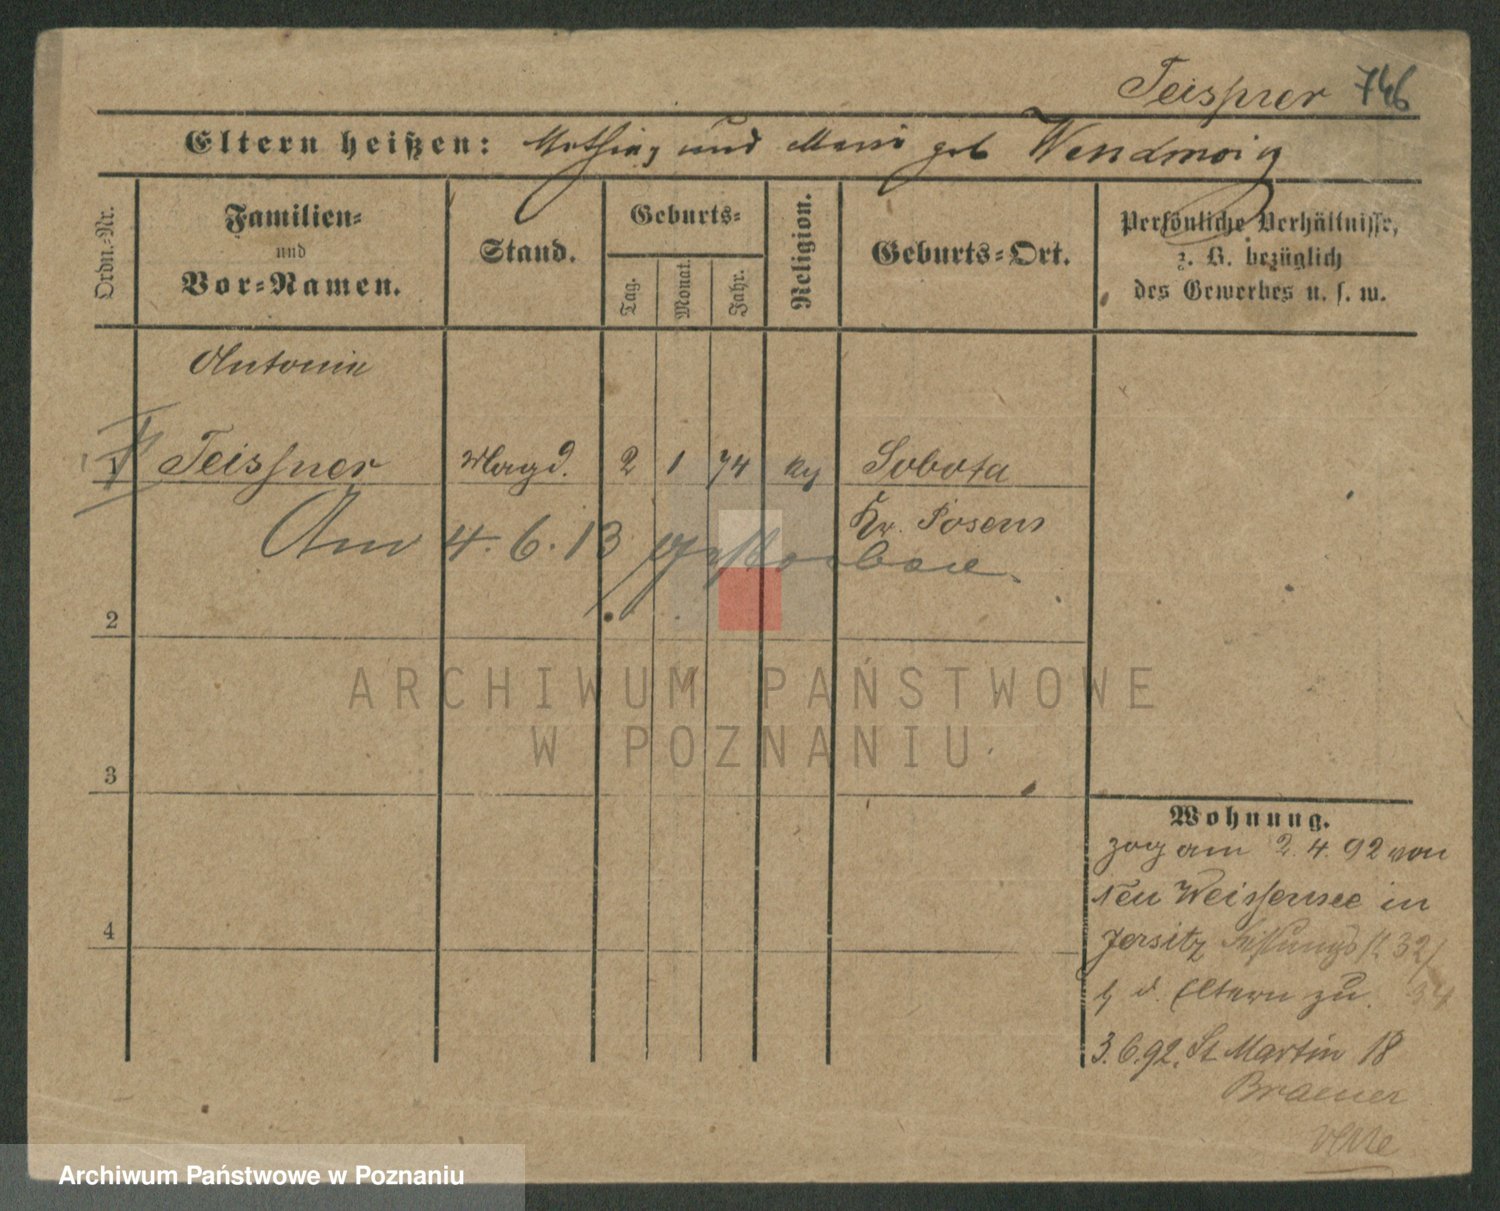 Teissner 746
Eltern heißen: Mathias und Marie geb
Ordn.-Nr.
Familien-
und
Vor-Namen.
Stand.
Geburts-
Tag.
Monat.
Jahr.
Religion.
Geburts-Ort.
Persönliche Verhältnisse,
z. B. bezüglich
des Gewerbes u. s. w.
Antonie
1 Teissner Magd. 2 1 74 Sobota
Kr. Posen
Am 4. 6. 13 gestorben.
2
3
4
Wohnung.
zog am 2. 4. 92 von
Neu Weissensee in
Jersitz 32/
b d. Eltern zu. 34
3. 6. 92. St Martin 18
ARCHIWUM PAŃSTWOWE
W POZNANIU
Archiwum Państwowe w Poznaniu